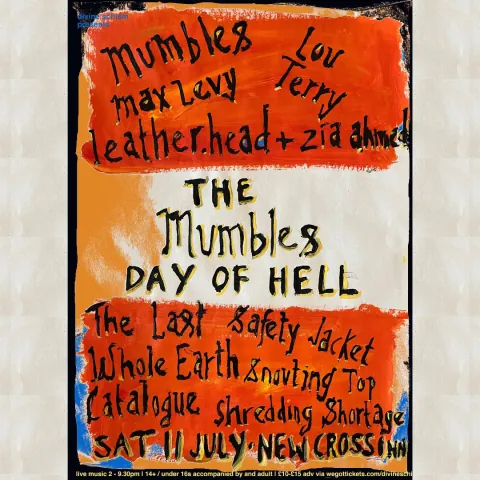 divine schism
presents
mumbles Lou
max Levy Terry
leather.head + zia ahmed
THE
Mumbles
DAY OF HELL
The Last Safety Jacket
Whole Earth Snouting Top
Catalogue Shredding Shortage
SAT 11 JULY · NEW CROSS INN
live music 2 - 9.30pm | 14+ / under 16s accompanied by and adult | £10-£15 adv via wegottickets.com/divineschi